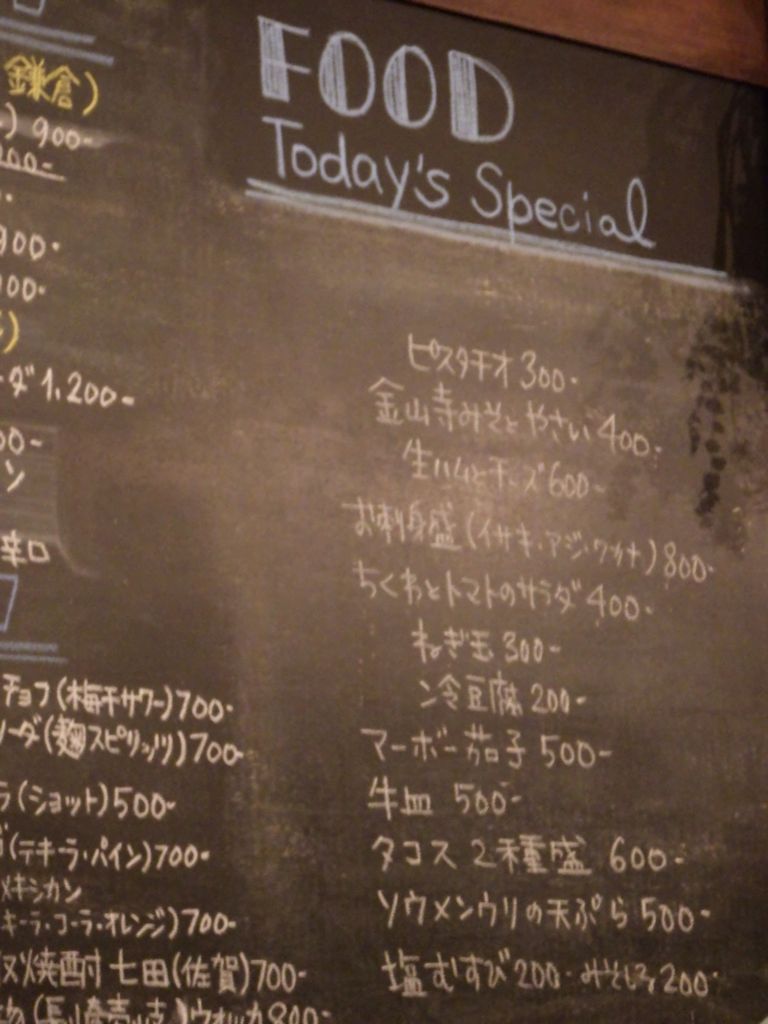 FOOD
Today's Special
ピスタチオ 300-
金山寺みそとやさい 400-
生ハムとチーズ 600-
お刺身盛(イサキ・アジ・ワカナ) 800-
ちくわとトマトのサラダ 400-
ねぎ玉 300-
冷豆腐 200-
マーボー茄子 500-
牛皿 500-
タコス 2種盛 600-
ソウメンウリの天ぷら 500-
塩むすび 200- みそしる 200-
鎌倉)
) 900-
900-
00-
ダ 1,200-
00-
ン
辛口
チョフ(梅干サワー) 700-
ーダ(麹スピリッツ) 700-
ラ(ショット) 500-
(テキーラ・パイン) 700-
メキシカン
キーラ・コーラ・オレンジ) 700-
焼酎 七田(佐賀) 700-
ウォッカ 800-